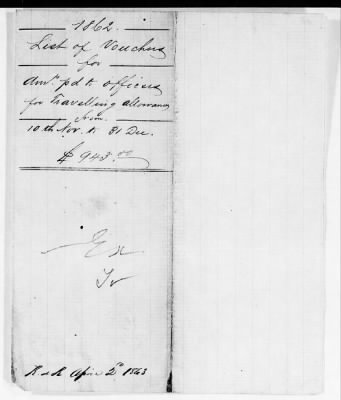 1862.
List of Vouchers
for
Amt. pd to officers
for Travelling allowances
from
10th Nov. to 31 Dec.
$943.00
Ex
Tr
R & R April 2d 1863